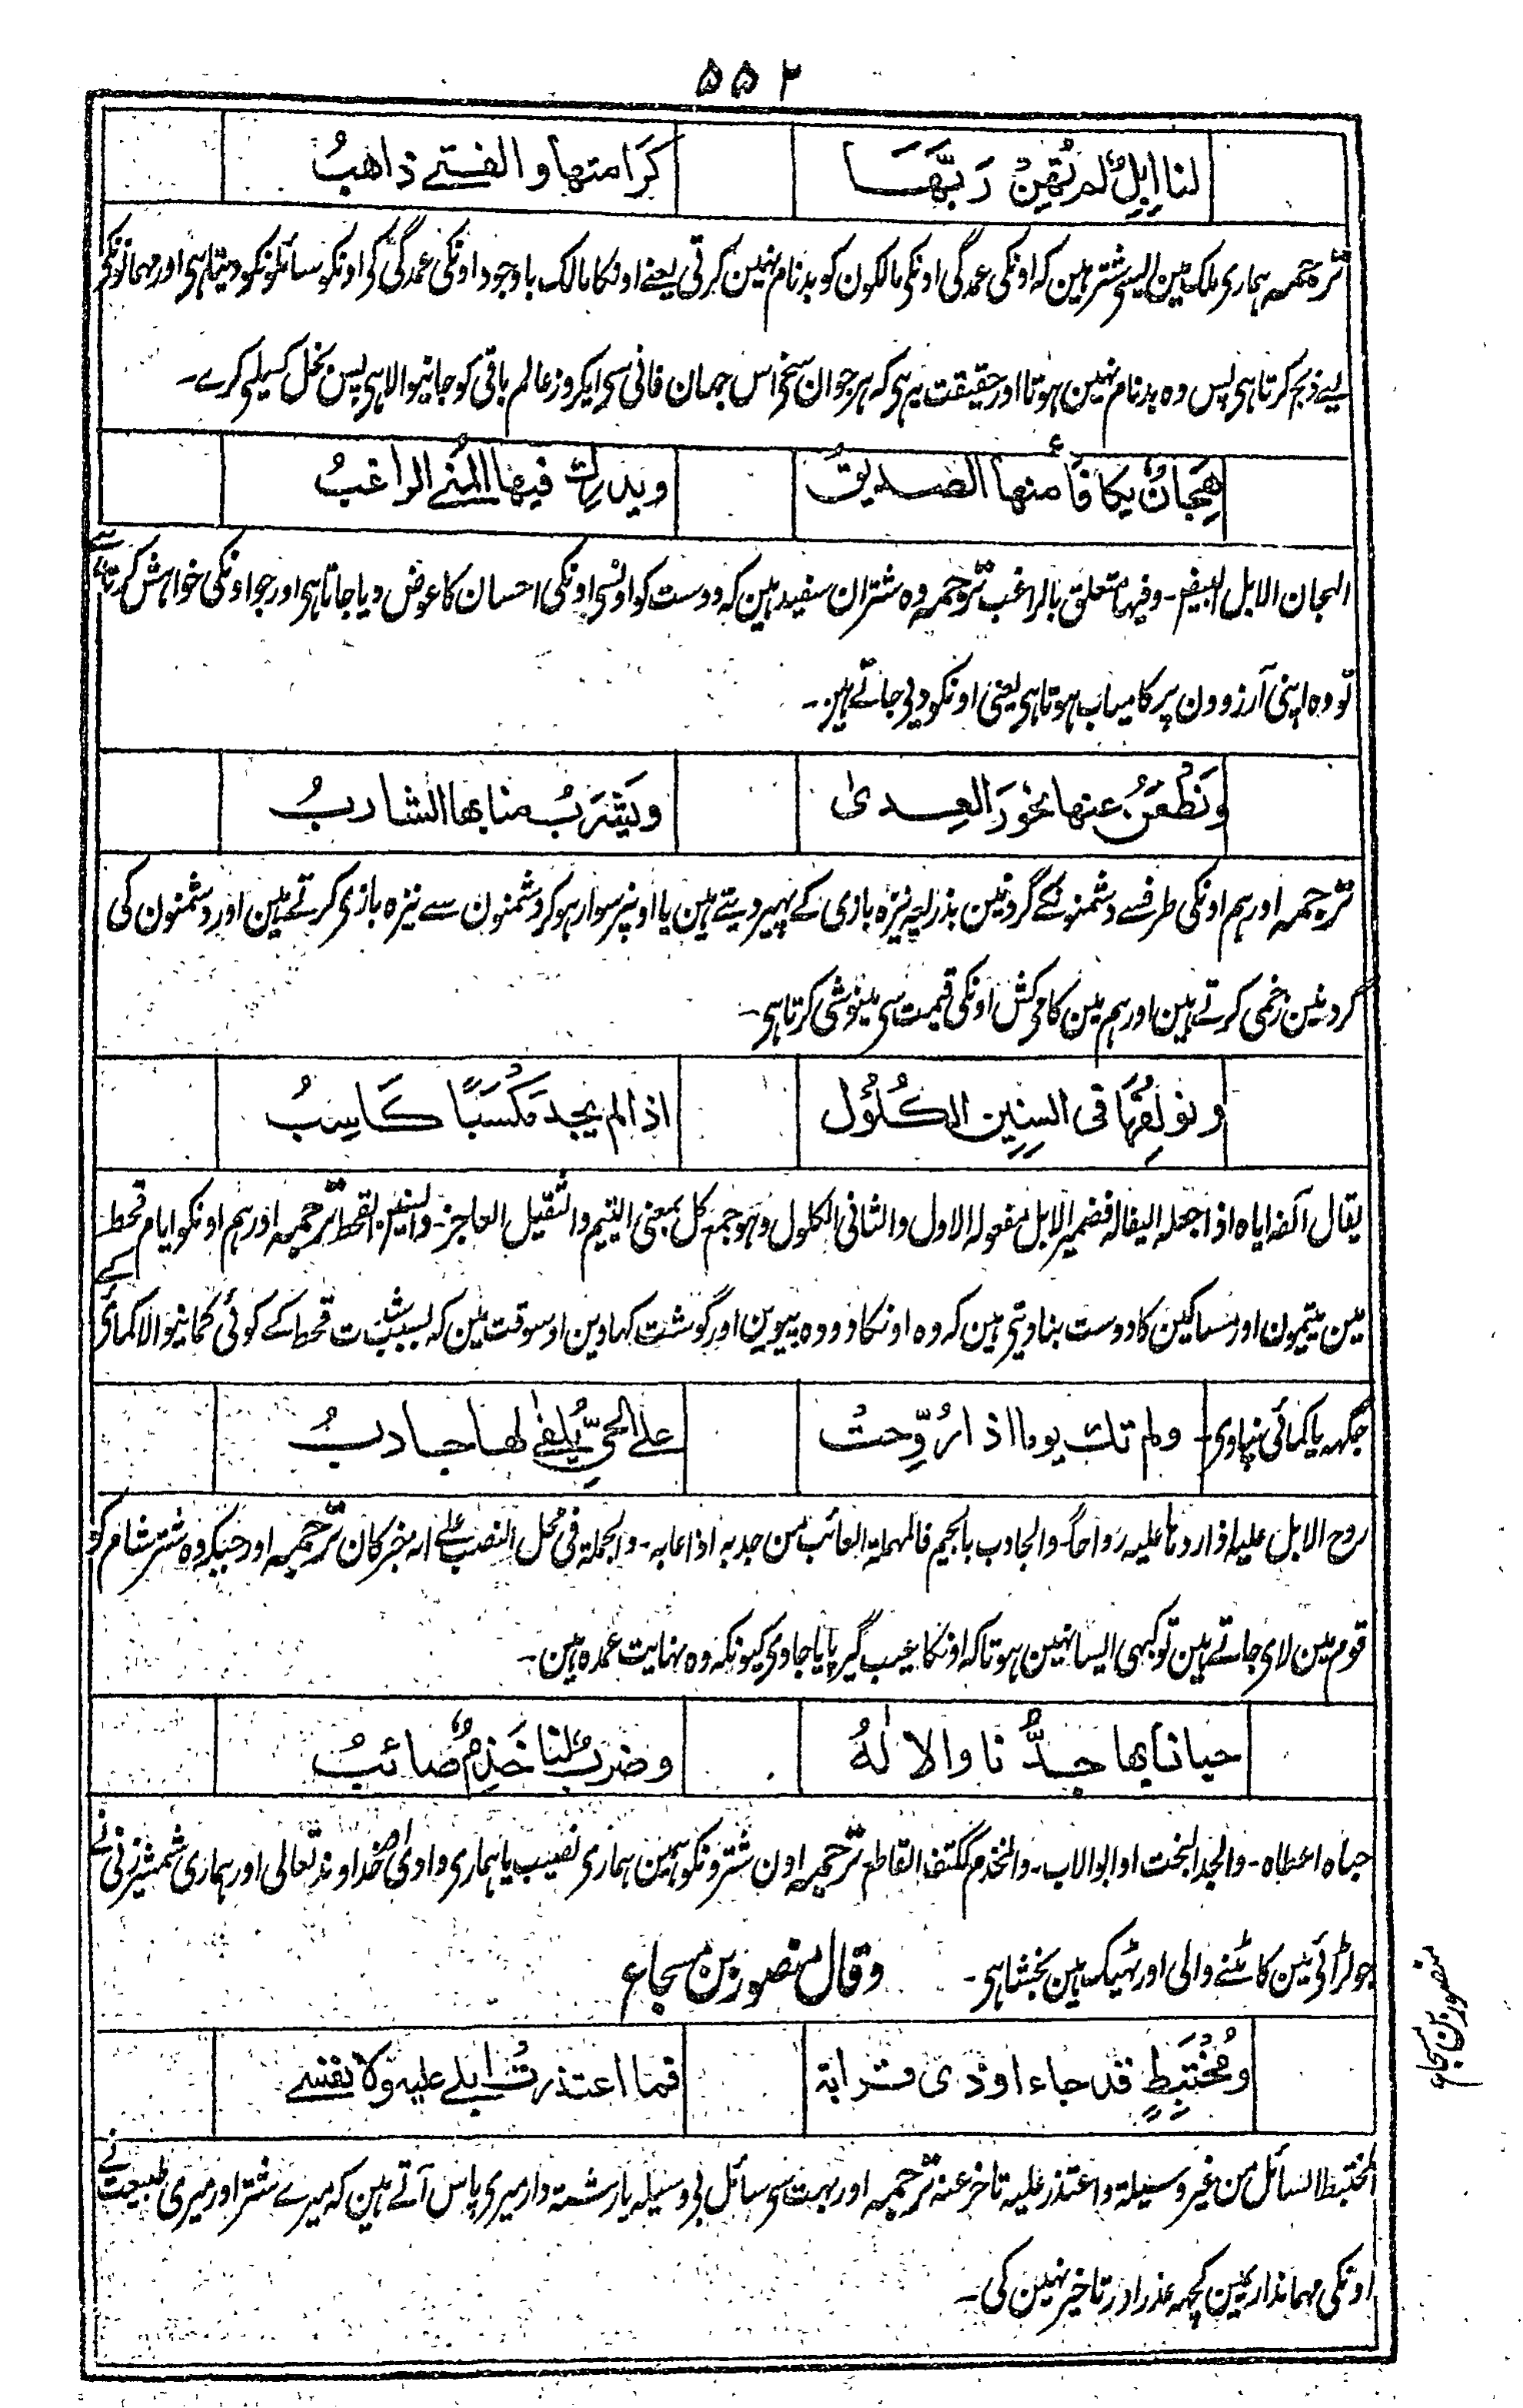 ۵۵۲
لنا اِبِلٌ لم تُهِنْ رَبَّهَا كَرَامتها والفتے ذاهبُ
ترجمہ ہماری ملک مین ایسی شتر ہین کہ اونکی عمدگی اونکی مالکون کو بدنام نہین کرتی یعنے اونکا مالک باوجود اونکی عمدگی کی اونکو سائلونکو دیتا ہی اور مہمانونکی
لیے ذبح کرتا ہی پس وہ بدنام نہین ہوتا اور حقیقت یہ ہی کہ ہر جوان سخی اس جہان فانی سی ایکروز عالم باقی کو جانیوالا ہی پس بخل کسیلی کرے۔
هِجَانٌ يكافَأُ منها الصديقُ ويدرك فيها المُنے الراغبُ
الہجان الابل البیض۔ وفیہا متعلق بالراغب ترجمہ وہ شتران سفید ہین کہ دوست کو اونسی اونکی احسان کا عوض دیا جاتا ہی اور جو اونکی خواہش کرتا ہے
تو وہ اپنی آرزوون پر کامیاب ہوتا ہی یعنی اونکو دیی جاتے ہین۔
ونَطْعَنُ عنها نحورَ العِدى ويَشْرَبُ منا بها الشاربُ
ترجمہ اور ہم اونکی طرفسے دشمنونکے گردنین بذریعہ نیزہ بازی کے پہیر دیتے ہین یا اونپر سوار ہو کر دشمنون سے نیزہ بازی کرتے ہین اور دشمنون کی
گردنین زخمی کرتے ہین اور ہم مین کا میکش اونکی قیمت سی مینوشی کرتا ہی۔
ونولِفُهَا فى السنِين الكُلُوْل اذا لم يجد مَكْسَبًا كَاسِبُ
یقال آلفہ ایاہ اذا جعلہ الیفا لہ فضمیر الابل مفعولہ الاول والثانی الکلول وہو جمع کل بمعنی الیتیم والثقیل العاجز۔ والسنین القحط ترجمہ اور ہم اونکو ایام قحط کے
مین یتیمون اور مساکین کا دوست بنا دیتی ہین کہ وہ اونکا دودہ پیوین اور گوشت کہاوین اوسوقت مین کہ بسبب شدت قحط کے کوئی کمانیوالا کمائی کی
جگہہ یا کمائی نپاوی۔ ولم تك يوما اذا رُوِّحتْ علے الحيِّ يُلفٰے لها جادبُ
روح الابل علیہ اذا ردہا علیہ رواحا۔ والجادب بالجیم فالمہملۃ العائب من جدبہ اذا عابہ۔ والجملۃ فی محل النصب علی انہ خبر کان ترجمہ اور جبکہ وہ شتر شام کو
قوم مین لای جاتے ہین تو کبہی ایسا نہین ہوتا کہ اونکا عیب گیر پایا جاوی کیونکہ وہ نہایت عمدہ ہین۔
حبانا بها جدُّنا والالٰهُ وضربٌ لنا خَذِمٌ صائبُ
حباہ اعطاہ۔ والجد البخت او ابو الاب۔ والخذم ککتف القاطع ترجمہ اون شترونکو ہمین ہماری نصیب یا ہماری دادی اور خداوند تعالی اور ہماری شمشیرزنی نے
جو لڑائی مین کاٹنے والی اور ٹہیک ہین بخشا ہی۔ وقال منصور بن مسجاع
ومُخْتَبِطٍ قد جاء اوذى قرابة فما اعتذرتْ ابلے عليه ولا نفسے
المختبط السائل من غیر وسیلۃ واعتذر علیہ تاخر عنہ ترجمہ اور بہت سی سائل بی وسیلہ یا رشتہ دار میری پاس آتے ہین کہ میرے شتر اور میری طبیعت نے
اونکی مہمانداری مین کچہہ عذر اور تاخیر نہین کی۔
منصور بن مسجاع